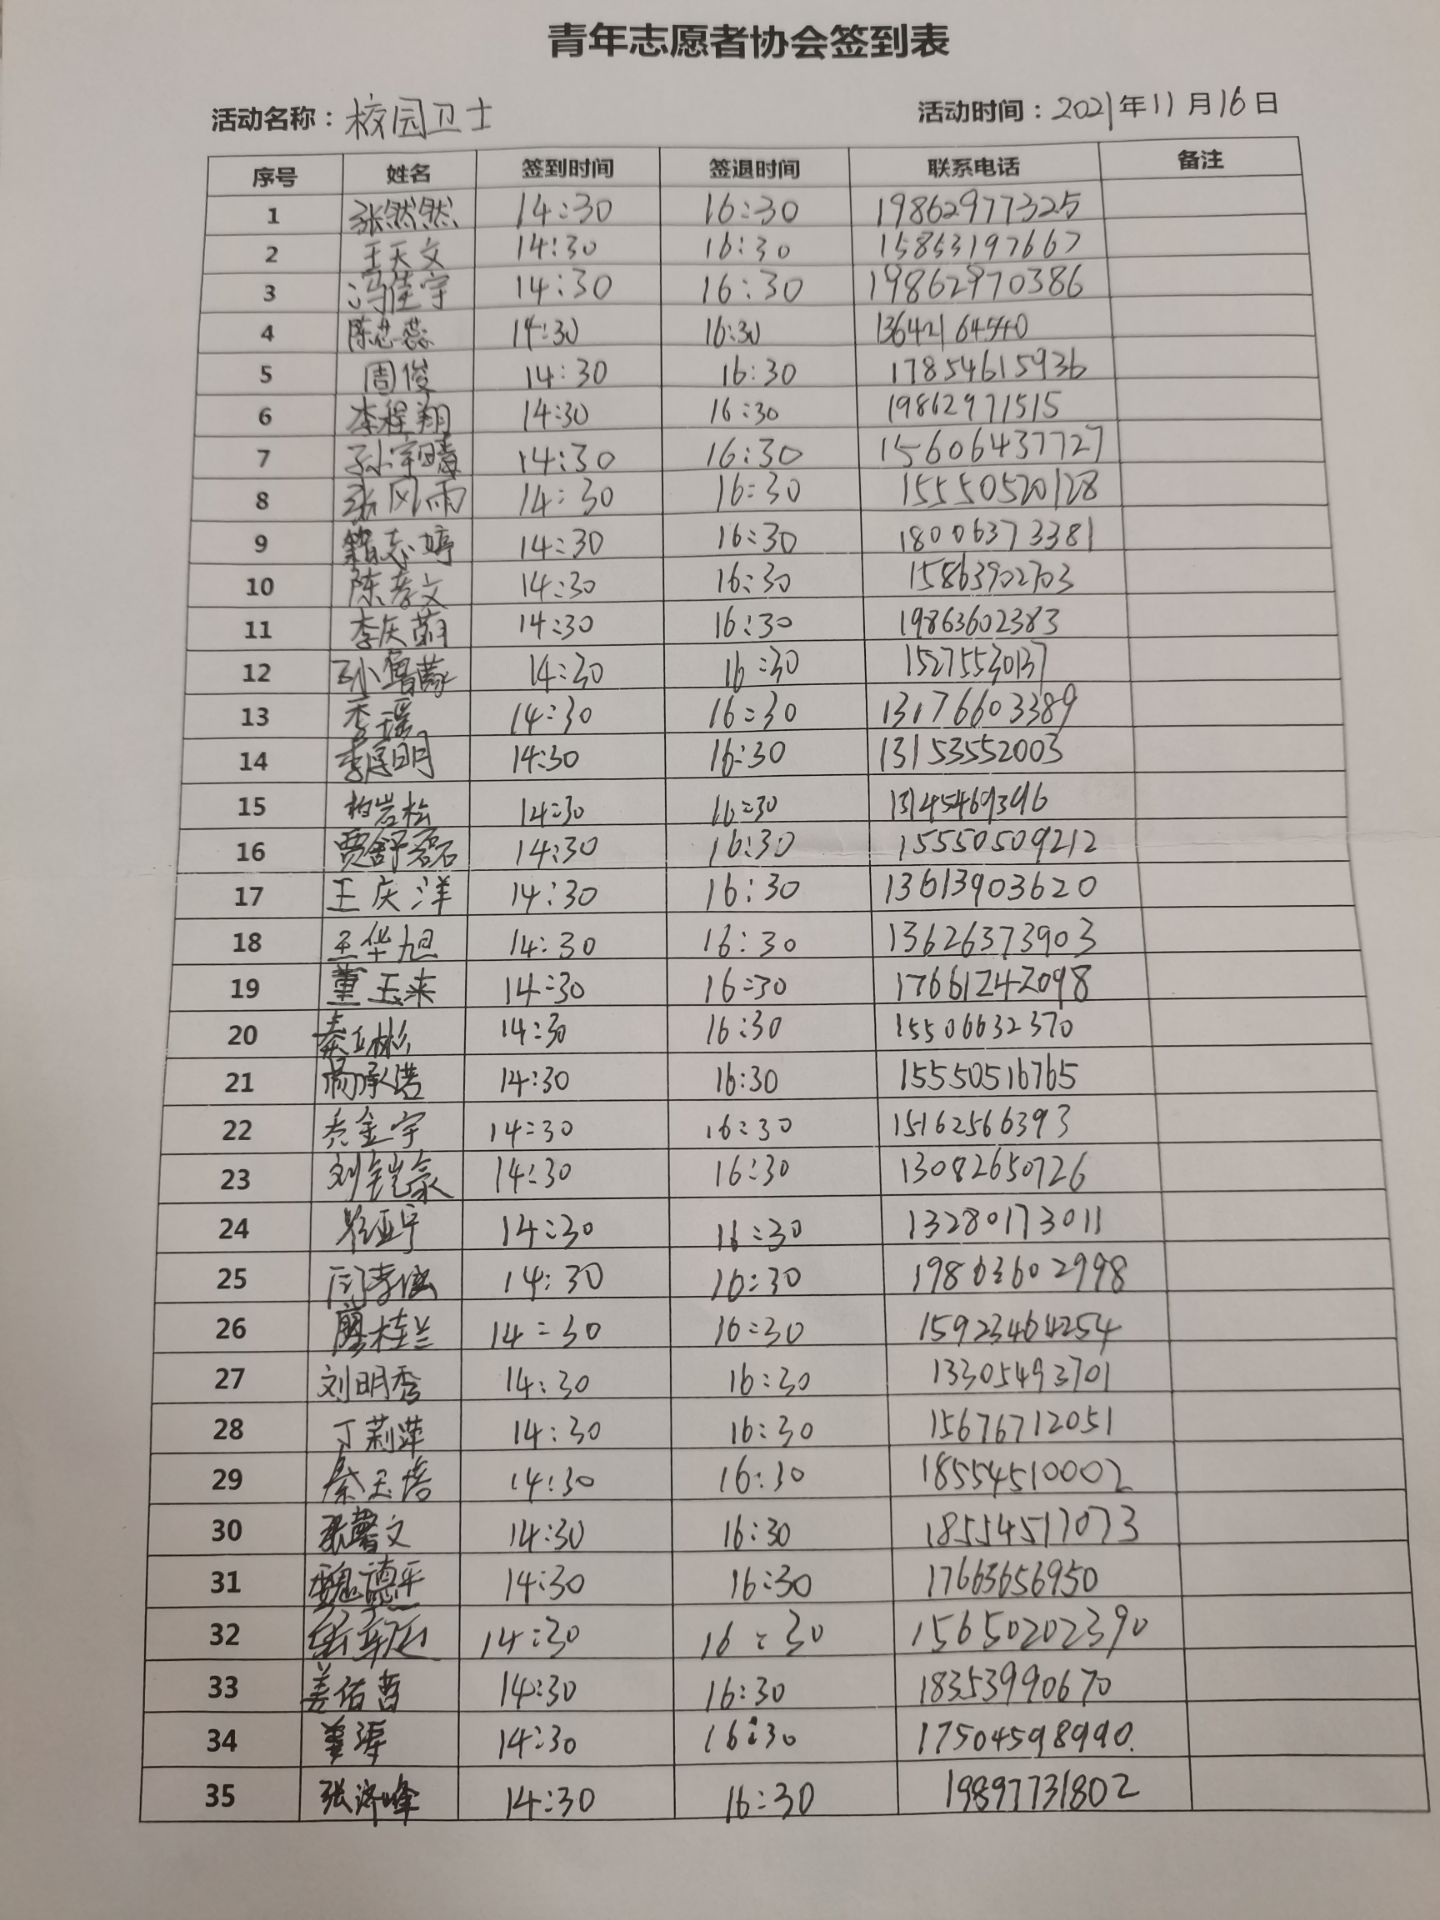 青年志愿者协会签到表
活动名称：校园卫士 活动时间：2021年11月16日
序号 姓名 签到时间 签退时间 联系电话 备注
1 张然然 14:30 16:30 19862977325
2 王天文 14:30 16:30 15853197667
3 冯佳宇 14:30 16:30 19862970386
4 陈芯蕊 14:30 16:30 13642164540
5 周俊 14:30 16:30 17854615936
6 李程翔 14:30 16:30 19862971515
7 孙宇晴 14:30 16:30 15606437727
8 张风雨 14:30 16:30 15550520128
9 志婷 14:30 16:30 18006373381
10 陈孝文 14:30 16:30 15863902703
11 李庆 14:30 16:30 19863602383
12 孙鲁蒙 14:30 16:30 15275530137
13 李瑶 14:30 16:30 13176603389
14 李厚明 14:30 16:30 13153552003
15 柏岩松 14:30 16:30
16 贾舒磊 14:30 16:30 15550509212
17 王庆洋 14:30 16:30 13613903620
18 王华旭 14:30 16:30 13626373903
19 董玉来 14:30 16:30 17661242098
20 秦正彬 14:30 16:30 15506632370
21 承浩 14:30 16:30 15550516765
22 金宇 14:30 16:30 15162566393
23 刘铠豪 14:30 16:30 13082650726
24 亚宇 14:30 16:30 13280173011
25 闫孝 14:30 16:30 19863602998
26 廖桂兰 14:30 16:30 15923464254
27 刘明秀 14:30 16:30 13305493701
28 丁莉萍 14:30 16:30 15676712051
29 蔡玉培 14:30 16:30 18554510002
30 张馨文 14:30 16:30 18554517073
31 魏德平 14:30 16:30 17663656950
32 14:30 16:30 15650202390
33 姜佑哲 14:30 16:30 18353990670
34 姜 14:30 16:30 17504598990.
35 张济峰 14:30 16:30 19897731802